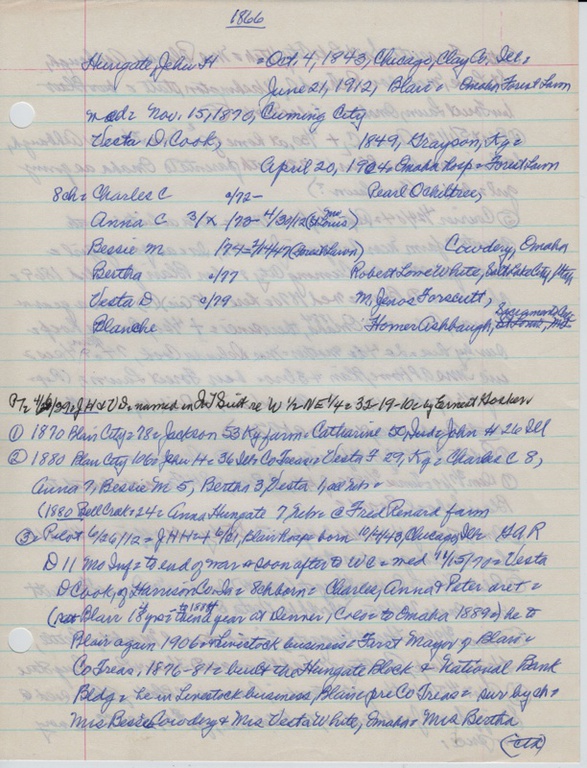 1866
Hungate, John H = Oct. 4, 1843, Chicago, Clay Co, Ill =
June 21, 1912, Blair = Omaha Forest Lawn
md = Nov. 15, 1870, Cuming City
Vesta D. Cook, 1849, Grayson, Ky =
April 20, 1924 = Omaha hosp = Forest Lawn
8 ch = Charles C 0/72- Pearl Ochiltree,
Anna C 3/x - /73 - 4/30/12 (St Louis Mo)
Bessie M /74 = (Forest Lawn) Cowdery, Omaha
Bertha 0/77 Robert Lowe White, Salt Lake City, Utah
Vesta D 0/79 M, Forscutt,
Blanche Homer Ashbaugh,
= J H & V D = named in re W 1/2 = NE 1/4 = 35-19-10 = by Ernest
① 1870 Blair City = 78 = Jackson 53 Ky farm = Catharine Ind = John H 26 Ill
② 1880 Blair City 106 = John H = 36 Ill Co Treas = Vesta F 29, Ky = Charles C 8,
Anna 7, Bessie M 5, Bertha 3, Vesta 1, all Nebr =
(1880 Bell Crek = 24 = Anna Hungate 7, Nebr @ Fred Renard farm
③ = Pilot 6/26/12 = J H H = + 6/21, Blair hosp = born 10/4/43, Chicago, Ills G A R
D 11 Mo Inf = to end of war = soon after to W C = med 11/15/70 = Vesta
D Cook, of Harrison Co, = 8 ch born = Charles, Anna & Peter
Blair 18 yrs = then a year at Denver, Colo = to Omaha 1889 =) he to
Blair again 1906 = Livestock business = First Mayor of Blair =
Co Treas, 1876-81 = built the Hungate Block & National Bank
Bldg = he in Livestock business, Blair, pre Co Treas = sur by ch =
Mrs Bessie Cowdery & Mrs Vesta White, Omaha = Mrs Bertha